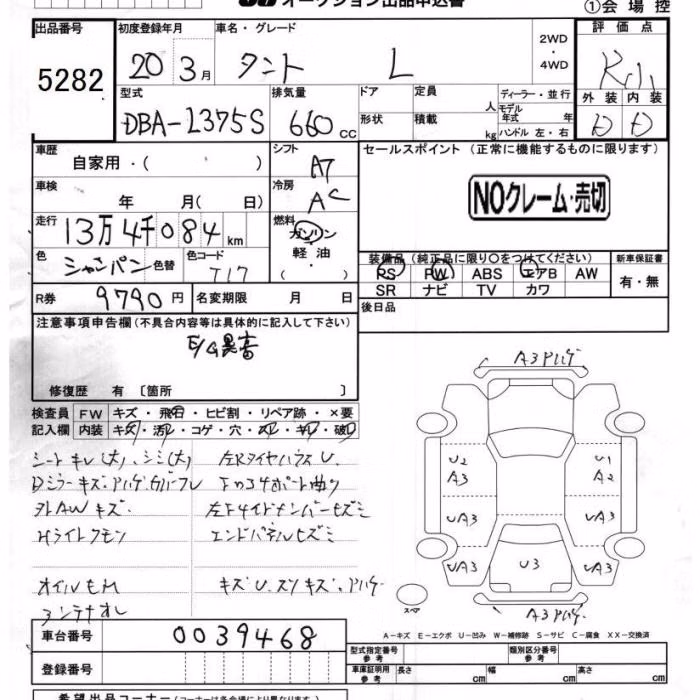 オークション出品申込書
①会場控
出品番号 初度登録年月 車名・グレード 2WD ・ 4WD 評価点
5282 20 3月 タント L
外装 内装
D D
型式 排気量 ドア 定員 人 ディーラー・並行
DBA-L375S 660 CC 形状 積載 kg モデル年式 年 ハンドル 左・右
車歴 自家用・( ) シフト AT
セールスポイント(正常に機能するものに限ります)
車検 年 月( 日) 冷房 AC
NOクレーム・売切
走行 13万4千084 km 燃料 ガソリン 軽油・( )
色 シャンパン 色替 色コード T17
装備品(純正品に限り○をつけてください) 新車保証書
PS PW ABS エアB AW 有・無
SR ナビ TV カワ
R券 9790円 名変期限 月 日 後日品
注意事項申告欄(不具合内容等は具体的に記入して下さい)
E/G異音
修復歴 有 [箇所 ]
検査員記入欄 FW キズ・飛石・ヒビ割・リペア跡・×要
内装 キズ・汚レ・コゲ・穴・スレ・キレ・破レ
シートキレ(大)、シミ(大) 左RタイヤハウスU.
Dミラーキズ、アハゲ、カバーフレ Fコアサポート曲り
外AWキズ. 左Fサイドメンバーヒズミ
Hライトクモリ エンドパネルヒズミ
オイルモレ キズU.スリキズ、アハゲ
アンテナオレ
A3アハゲ
U2 A3 U1 A2
UA3 UA3
UA3 U3 UA3
スペア A3アハゲ
A-キズ E-エクボ U-凹み W-補修跡 S-サビ C-腐食 XX-交換済
車台番号 0039468
型式指定番号 参考 類別区分番号 参考
登録番号
車庫証明用 参考 長さ cm 幅 cm 高さ cm
希望出品コーナー(コーナーは各会場により異なります)